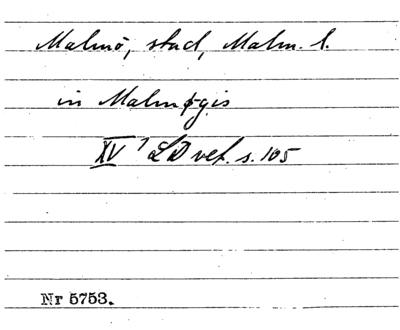 Malmö, stad, Malm. l.
in Malmøgis
XV 1 LD vet. s. 105
Nr 5753.